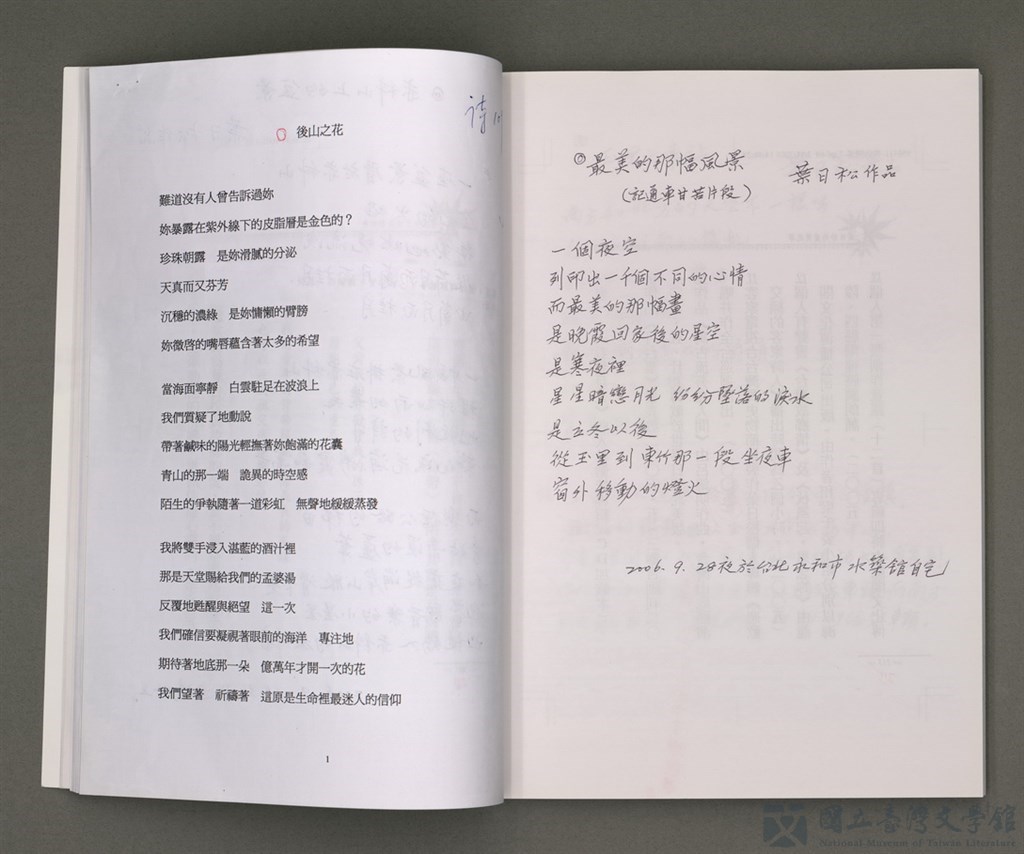 後山之花
詩
難道沒有人曾告訴過妳
妳暴露在紫外線下的皮脂層是金色的？
珍珠朝露　是妳滑膩的分泌
天真而又芬芳
沉穩的濃綠　是妳慵懶的臂膀
妳微啓的嘴唇蘊含著太多的希望
當海面寧靜　白雲駐足在波浪上
我們質疑了地動說
帶著鹹味的陽光輕撫著妳飽滿的花囊
青山的那一端　詭異的時空感
陌生的爭執隨著一道彩虹　無聲地緩緩蒸發
我將雙手浸入湛藍的酒汁裡
那是天堂賜給我們的孟婆湯
反覆地甦醒與絕望　這一次
我們確信要凝視著眼前的海洋　專注地
期待著地底那一朵　億萬年才開一次的花
我們望著　祈禱著　這原是生命裡最迷人的信仰
1
◎最美的那幅風景
葉日松作品
（記通車甘苦片段）
一個夜空
列印出一千個不同的心情
而最美的那幅畫
是晚霞回家後的星空
是寒夜裡
星星暗戀月光　紛紛墜落的淚水
是立冬以後
從玉里到東竹那一段坐夜車
窗外移動的燈火
2006.9.28夜於台北永和市水築館自宅
國立臺灣文學館
National Museum of Taiwan Literature